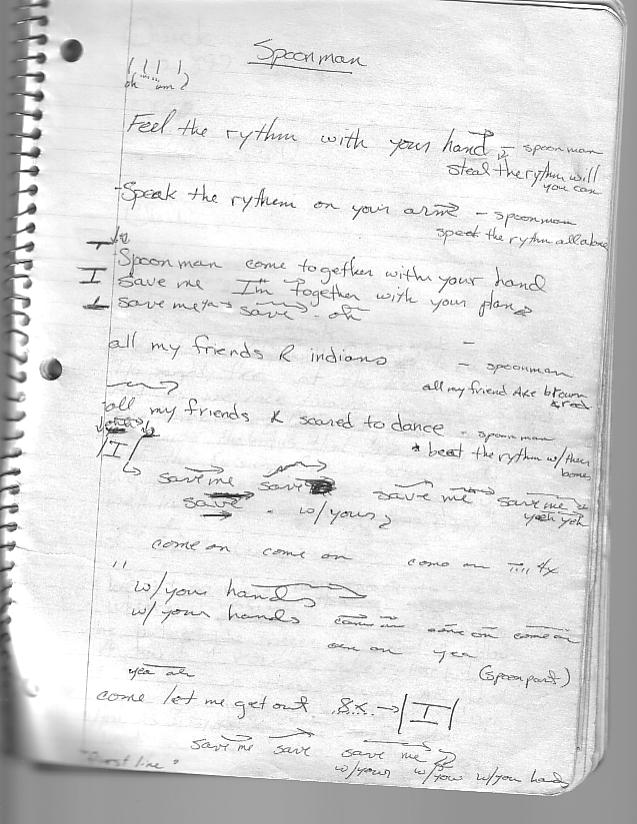 Spoonman
oh um
Feel the rythm with your hand - spoonman
steal the rythm will
you can
-Speak the rythem on your arm - spoonman
speak the rythm all
Spoonman come together with your hand
I save me I'm together with your plan
save me save oh
all my friends R indians - spoonman
all my friend Are brown
& red
all my friends R scared to dance - spoonman
* beat the rythm w/ their
bones
I
save me save save me save me
save w/ yours yeh yeh
come on come on como on 4x
" w/ your hands
w/ your hands come on come on come on
come on yea
(spoon part)
yea oh
come let me get out 8x → |I|
save me save save me
w/yours w/you w/you hands
"First line"